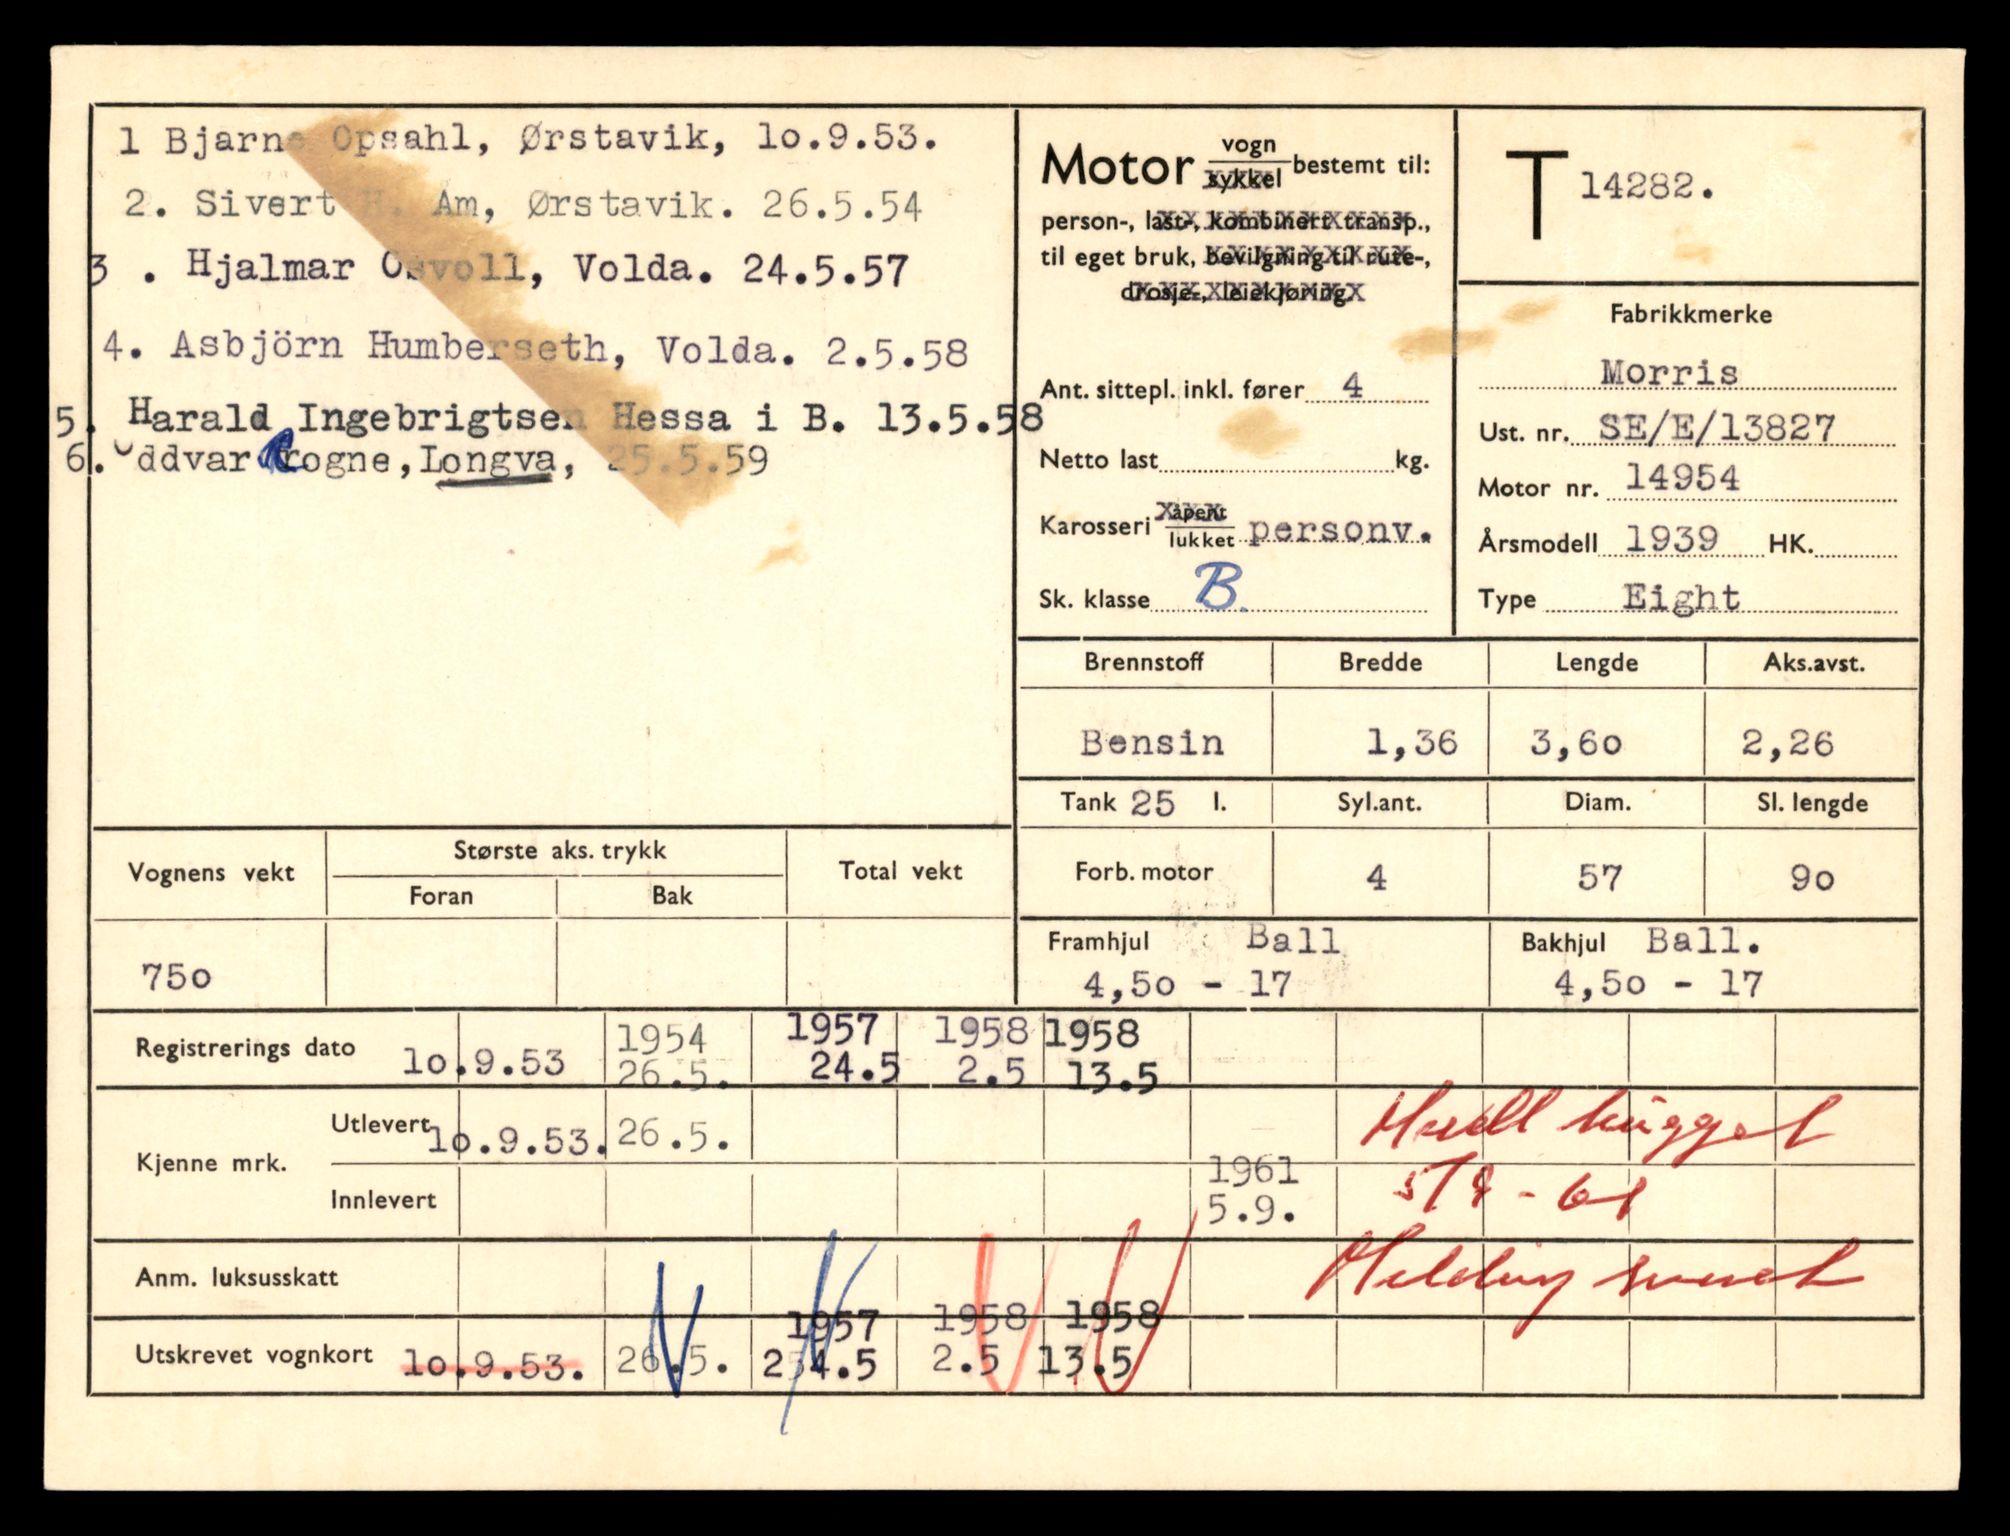 1 Bjarne Opsahl, Ørstavik, 1o.9.53.
2. Sivert H. Åm, Ørstavik. 26.5.54
3 . Hjalmar Osvoll, Volda. 24.5.57
4. Asbjörn Humberseth, Volda. 2.5.58
5. Harald Ingebrigtsen Hessa i B. 13.5.58
6. Oddvar Rogne, Longva, 25.5.59
Motor vogn bestemt til:
sykkel
person-, last-, kombinert transp.,
til eget bruk, bevilgning til rute-,
drosje-, leiekjøring
Ant. sittepl. inkl. fører 4
Netto last kg.
Karosseri åpent
lukket personv.
Sk. klasse B.
T 14282.
Fabrikkmerke
Morris
Ust. nr. SE/E/13827
Motor nr. 14954
Årsmodell 1939 HK.
Type Eight
Brennstoff Bredde Lengde Aks.avst.
Bensin 1,36 3,6o 2,26
Tank 25 l. Syl.ant. Diam. Sl. lengde
Forb. motor 4 57 9o
Framhjul Ball Bakhjul Ball.
4,5o - 17 4,5o - 17
Vognens vekt Største aks. trykk Total vekt
Foran Bak
75o
1954 1957 1958 1958
Registrerings dato 1o.9.53 26.5. 24.5 2.5 13.5
Kjenne mrk. Utlevert 1o.9.53. 26.5.
Innlevert 1961
5.9.
hugget
5/9-61
Melding sendt
Anm. luksusskatt
1957 1958 1958
Utskrevet vognkort 1o.9.53. 26.5. 24.5 2.5 13.5